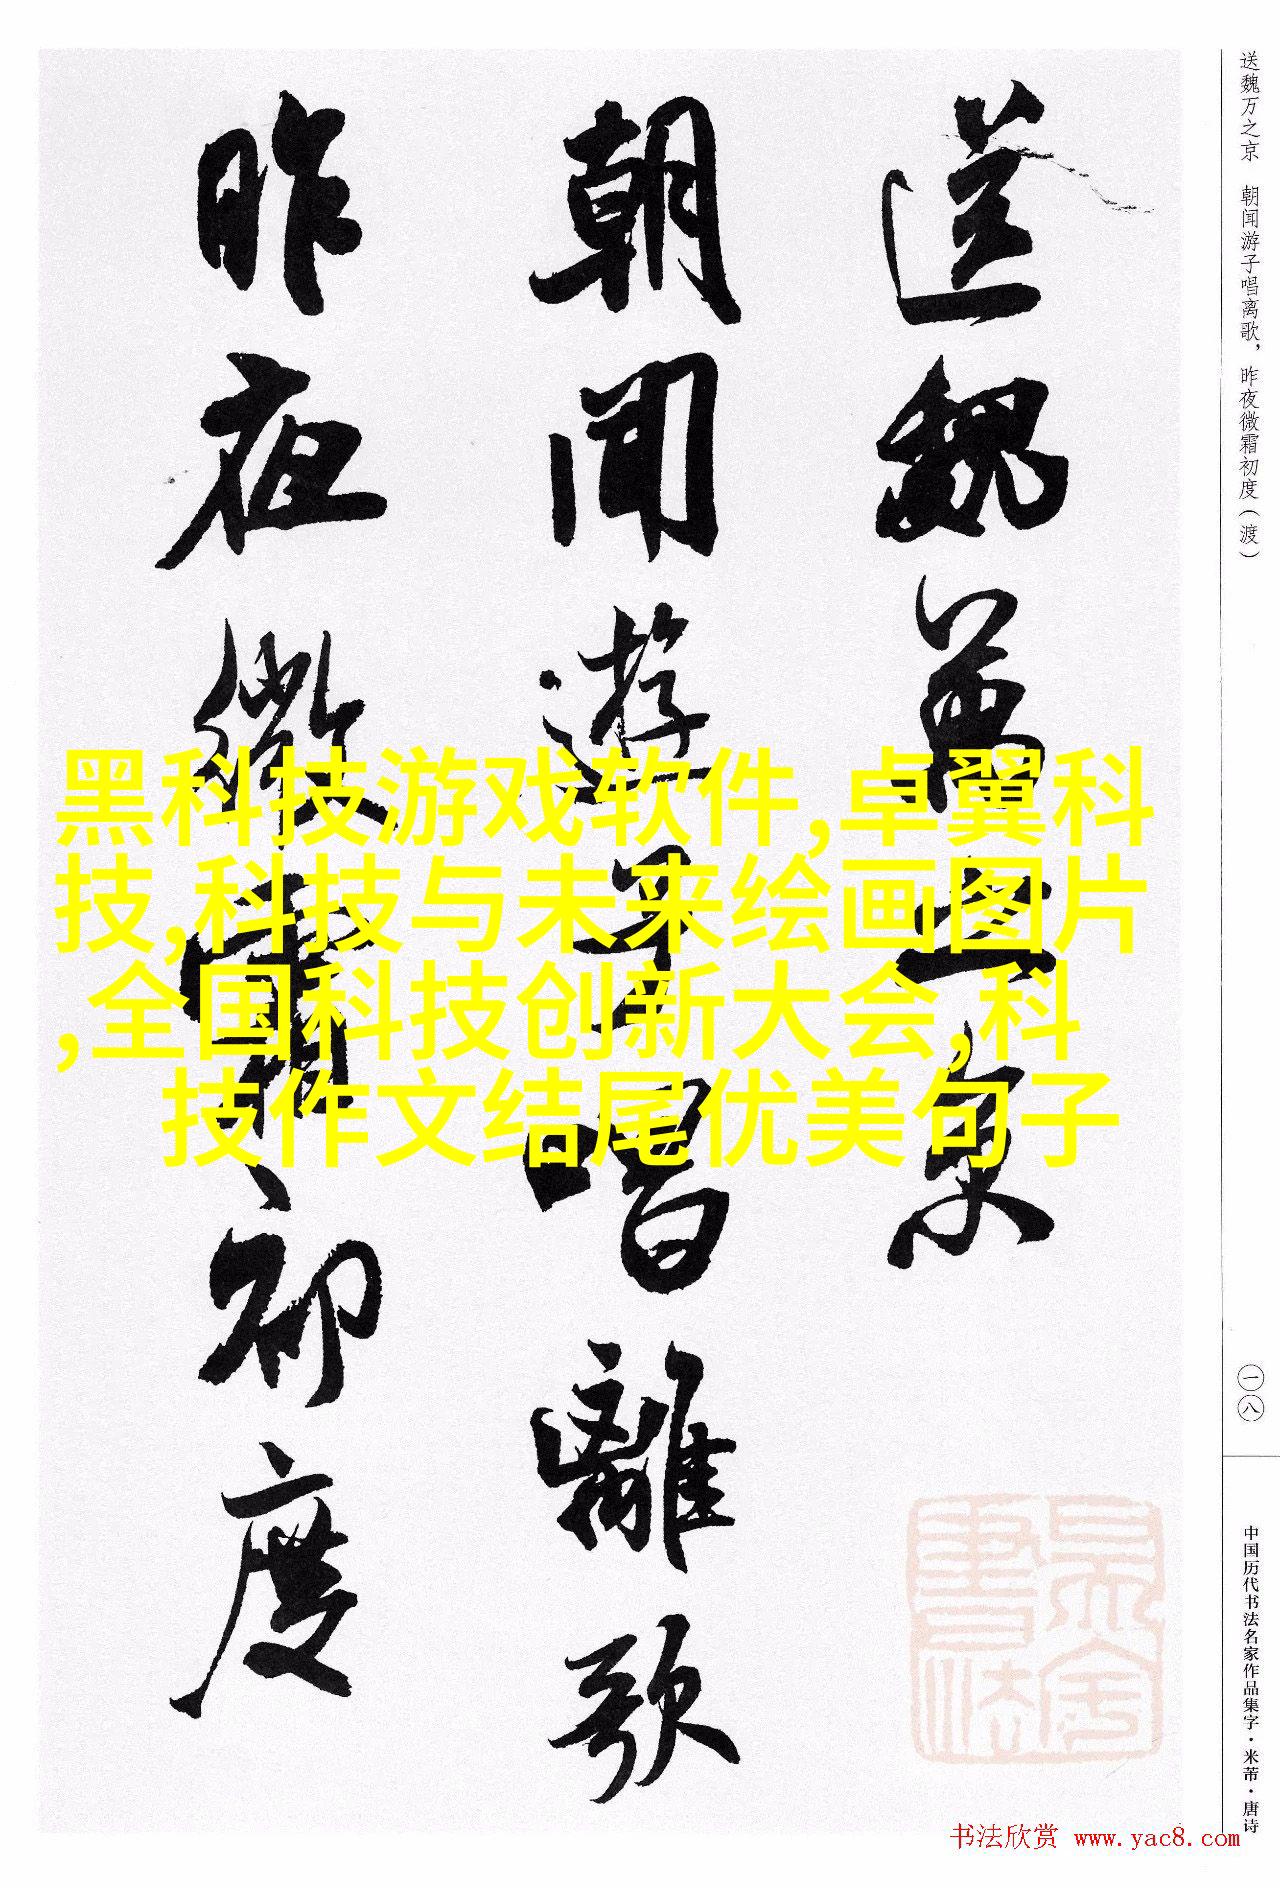 送魏萬之京
朝聞遊子唱離歌
昨夜微霜初度
送魏万之京　朝闻游子唱离歌，昨夜微霜初度（渡）
一八
中国历代书法名家作品集字·米芾·唐诗
黑科技游戏软件,卓翼科
技,科技与未来绘画图片
,全国科技创新大会,科
技作文结尾优美句子
书法欣赏 www.yac8.com